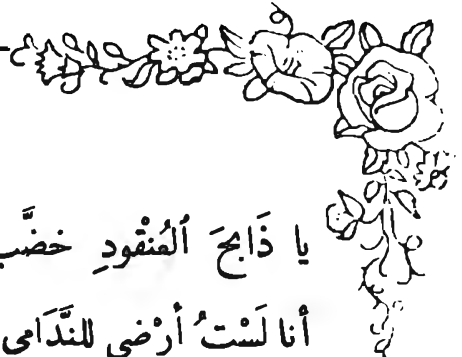 يا ذَابِحَ العُنْقودِ خضَّب
أنا لَسْتُ أرْضى للنَّدَامى